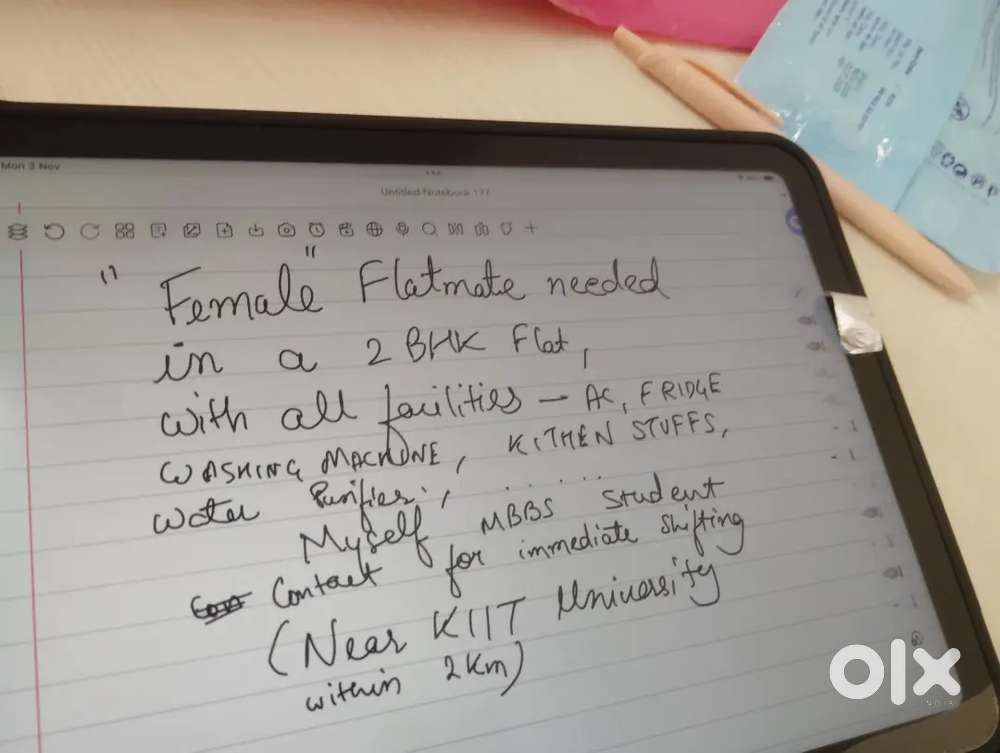 Mon 3 Nov
Untitled Notebook 177
"Female" Flatmate needed
in a 2 BHK Flat,
with all facilities – AC, FRIDGE
WASHING MACHINE, KITHEN STUFFS,
water Purifier, ......
Myself MBBS student
Contact for immediate shifting
(Near KIIT University
within 2km)
olx
INDIA